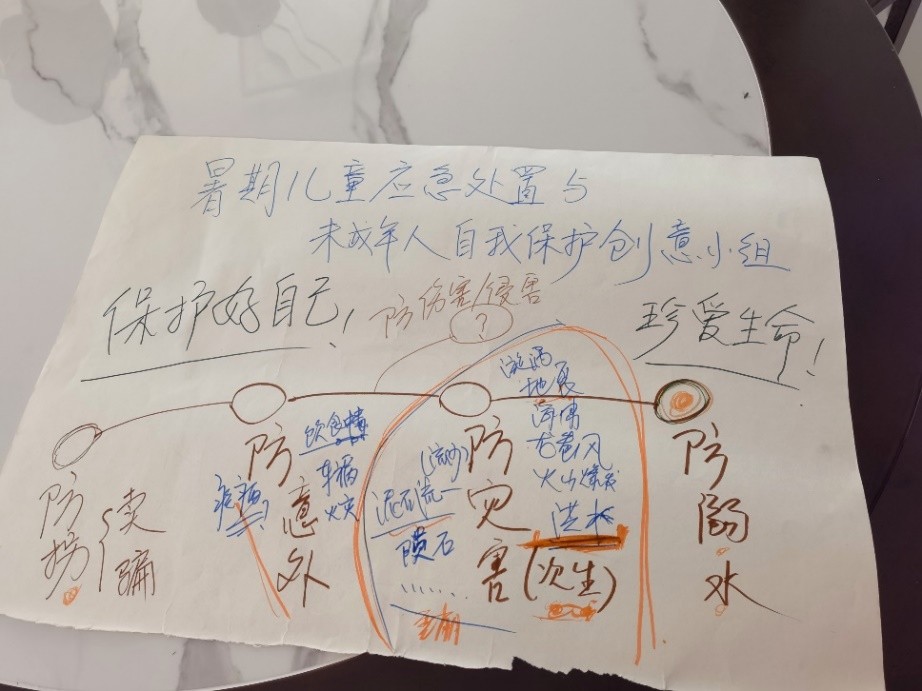 暑期儿童应急处置与
未成年人自我保护创意小组
保护好自己!
防伤害/侵害
?
珍爱生命!
防拐卖骗
防意外
饮食
车祸
火灾
防灾害(次生)
(流沙)
泥石流
陨石
……
漩涡
地震
海啸
龙卷风
火山爆发
洪水
防溺水